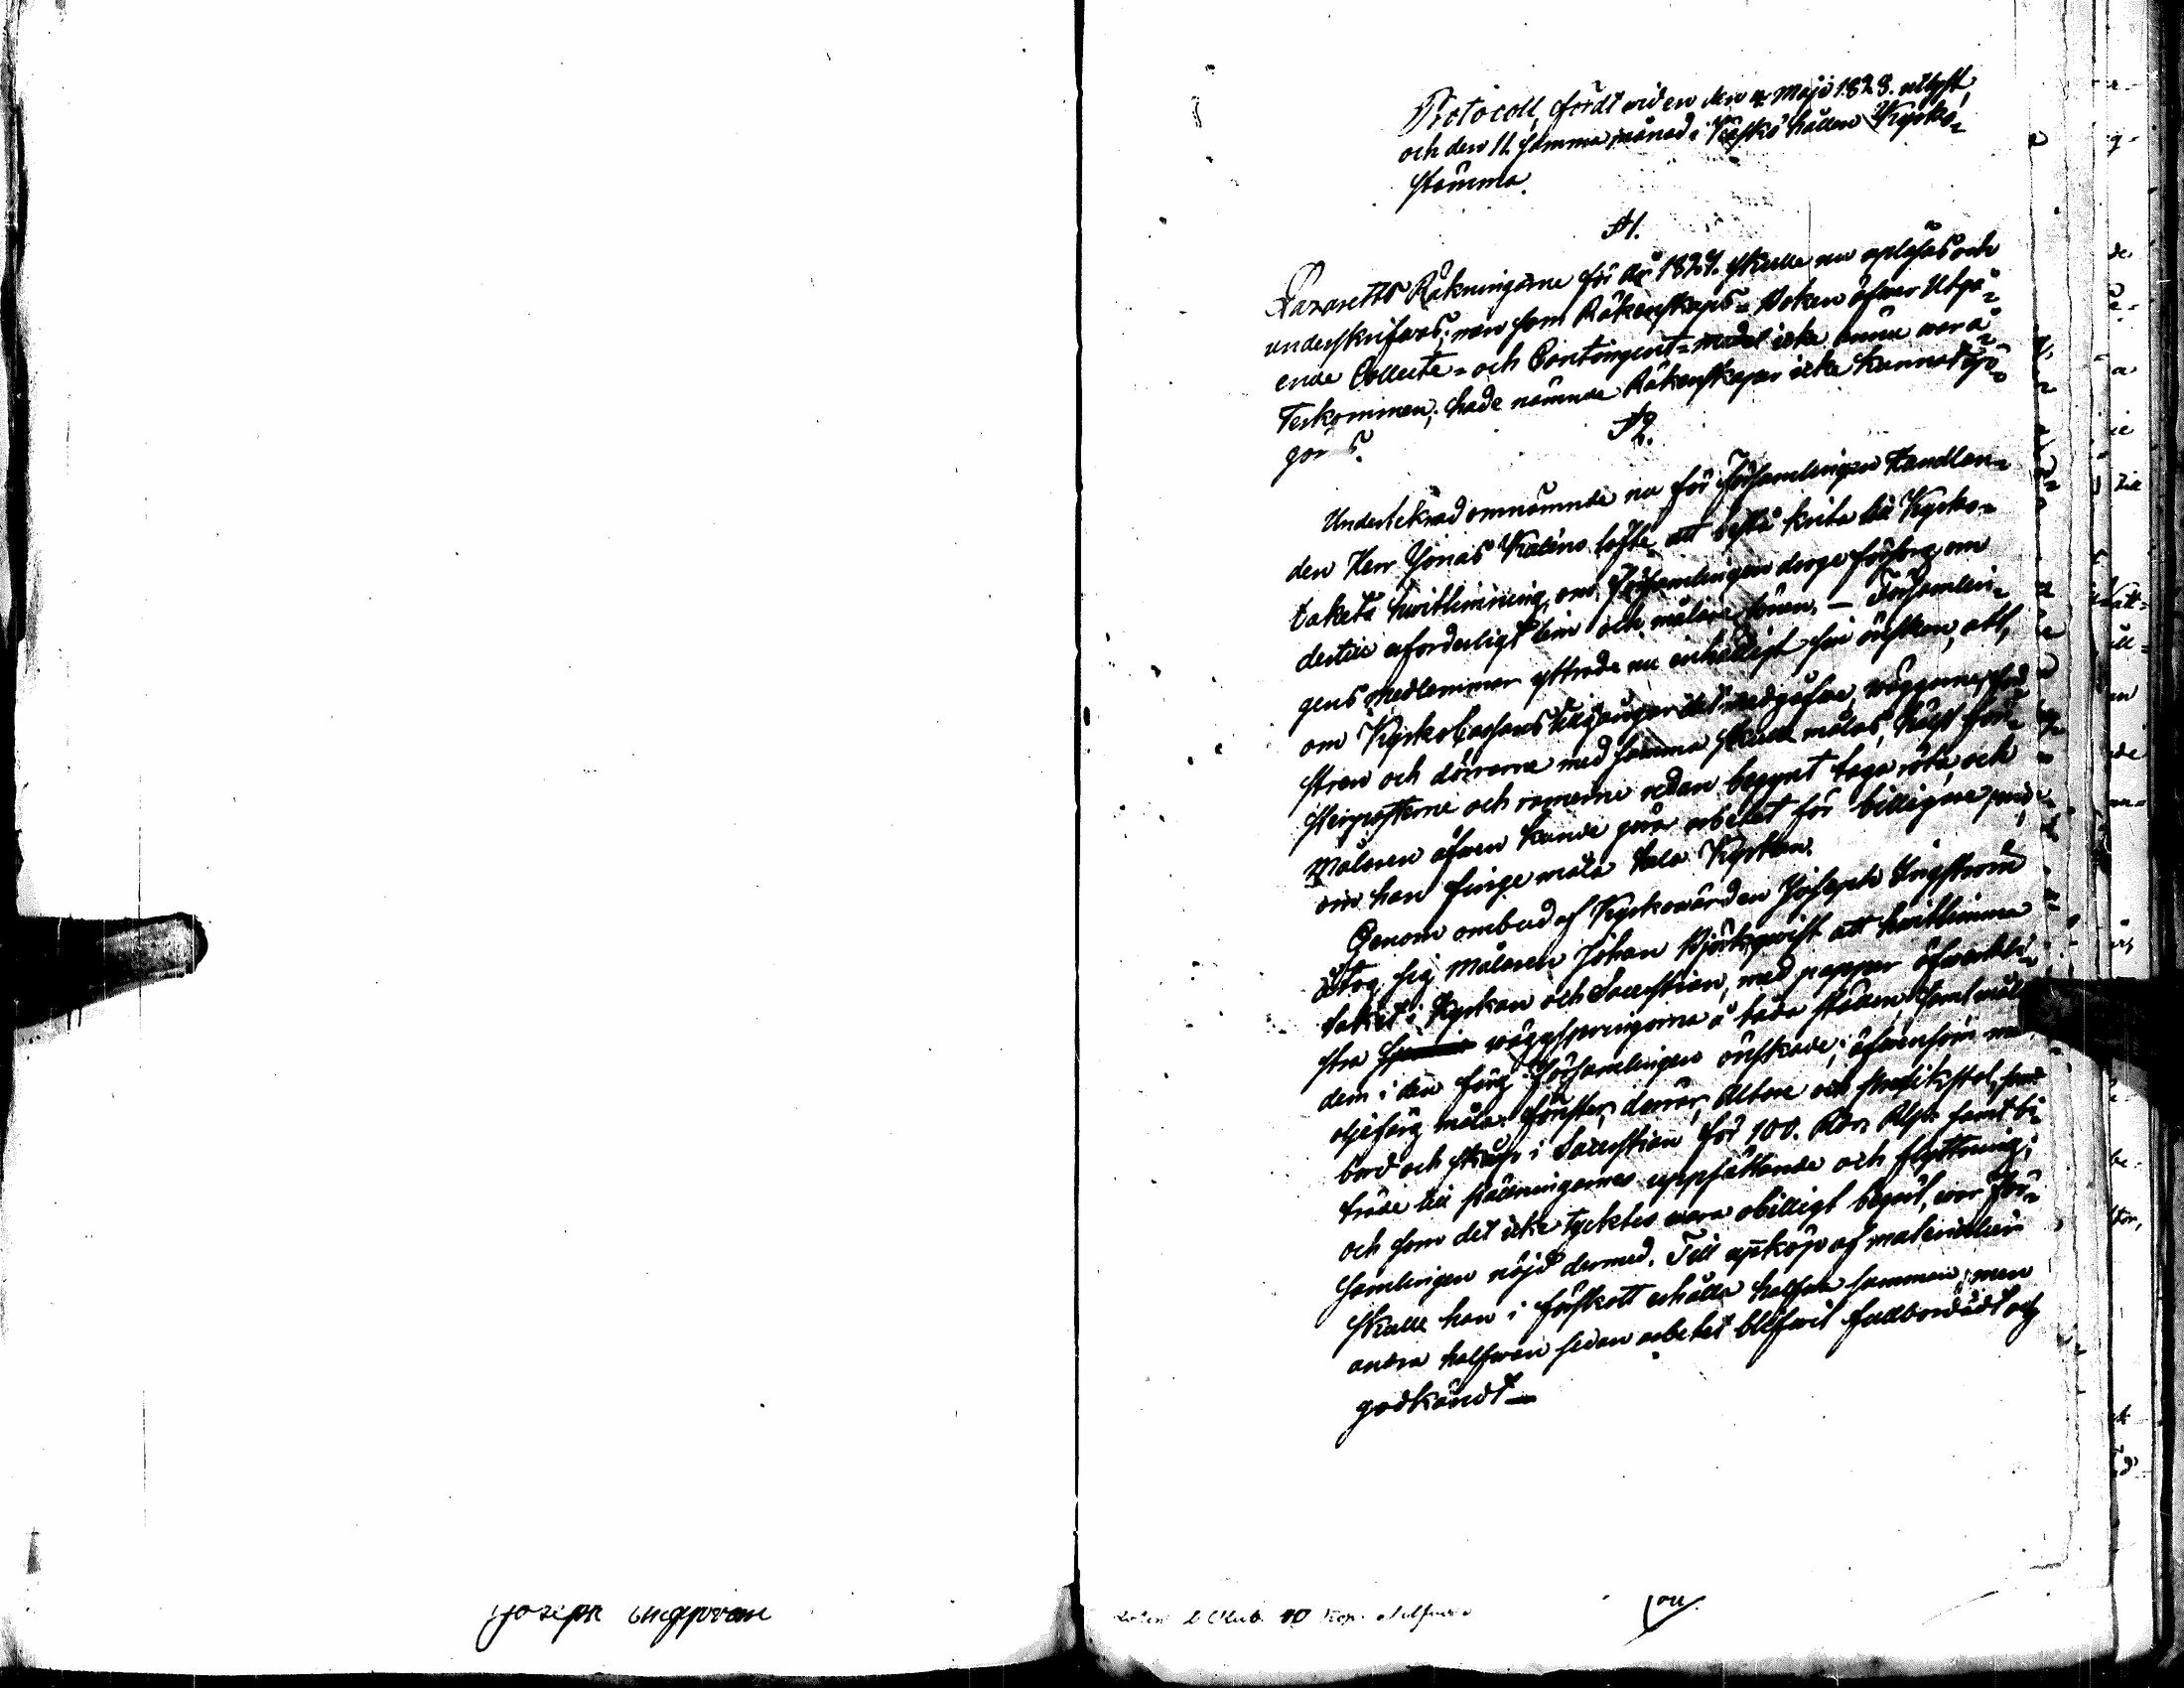 Joseph
Protocoll, fördt wid en den 4 Maji 1828. utlyst,
och den 11 samma månad i Kaskö hållen Kyrko-
stämma.
§1.
Lazaretts Räkningarne för år 1827. skulle nu upläsas och
underskrifwas; men som Räkenskaps-Boken öfwer Utgå-
ende Collecte- och Contingent-medel icke ännu war å-
terkommen, hade nämnde Räkenskaper icke kunnat upp-
göras.
§2.
Undertecknad omnämnde nu för Församlingen Handlan-
den Herr Jonas löfte, att bestå krita till Kyrko-
takets hwitlimning, om Församlingen droge försorg om
dertill erforderligt lim och målare lönen. — Församlin-
gens medlemmar yttrade nu enhälligt sin önskan, att,
om Kyrko Cassans tillgångar det medgåfwe, wäggarne, fön-
stren och dörrarne med samma skulle målas, hälst fön-
sterposterne och ramerne redan begynt taga röta, och
Målaren äfwen kunde göra arbetet för billigare pris,
om han finge måla hela Kyrkan.
Genom ombud af Kyrkowärden Joseph Ingström
åtog sig Målaren Johan Björkqwist att hwitlimma
taket i Kyrkan och Sacristian, med papper öfwerkli-
stra wäggspringorna å båda ställen, samt måla
dem i den färg Församlingen önskade; äfwensom med
oljefärg måla fönster, dörrar, Altare och Predikstol, samt
bord och skåp i Sacristian för 100. Rdr Rgs samt bi-
träde till ställningarnes uppsättande och flyttning;
och som det icke tycktes wara obilligt begärt, war För-
samlingen nöjd dermed. Till uppköp af materialier
skulle han i förskott erhålla halfwa summan; men
andra halfwan sedan arbetet blifwit fullbordadt och
godkändt —